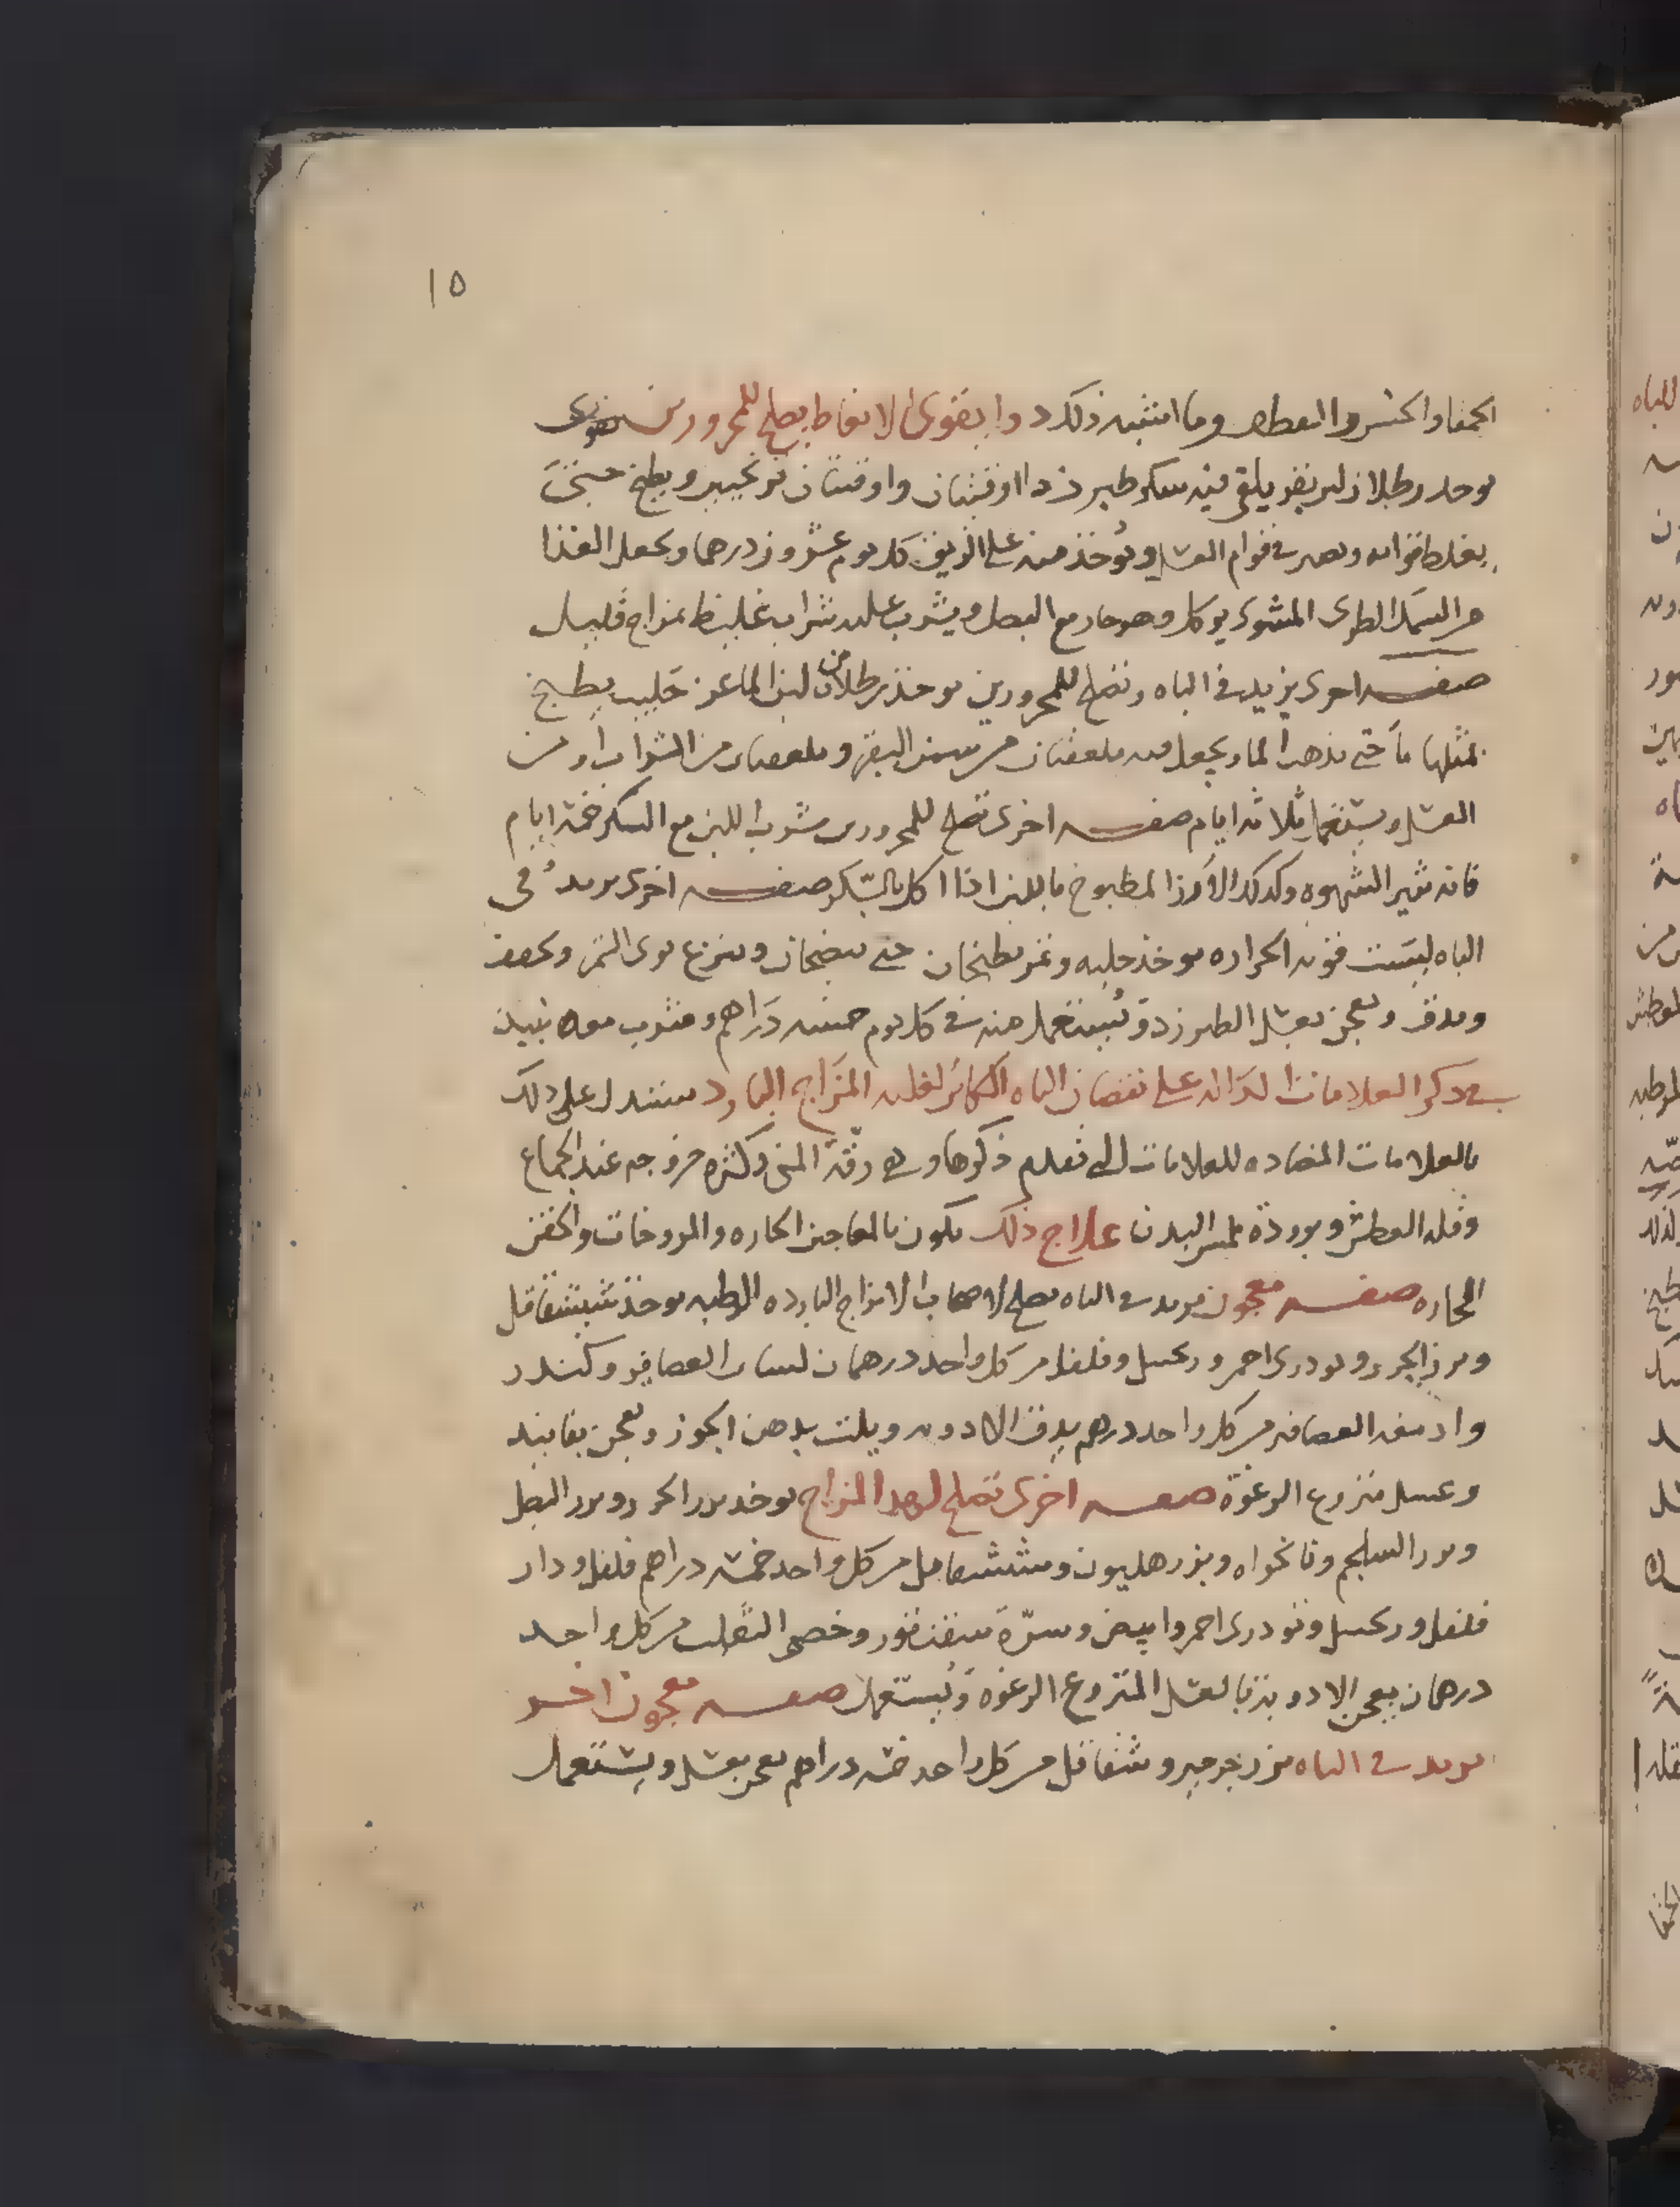 ١٥
الحمقا والخس والقطف وما اشبه ذلك دوا يقوى الانعاظ يصلح للمحرورين
يوخد رطلان لبن بقر يلقى فيه سكر طبرزد اوقيتان واوقيتان ترنجبين ويطبخ حتى
يغلظ قوامه ويصير في قوام العسل ويُوخذ منه على الريق كل يوم عشرون درهما ويجعل الغذا
من السمك الطرى المشوى يوكل وهو حار مع البصل ويشرب عليه شراب غليظ بمزاج قليل
صفه اخرى يزيد في الباه وتصلح للمحرورين يوخذ رطلان من لبن الماعز حَليب يطبخ
بمثلها مآ حتى يذهب الما ويجعل فيه ملعقتان من سمن البقر وملعقتان من الشراب او من
العسل ويستعمل ثلاثه ايام صفه اخرى تصلح للمحرورين شرب اللبن مع السكر خمسة ايام
فانه يثير الشهوه وكدلك الأرز المطبوخ باللبن اذا اكل بالسكر صفه اخرى يزيد في
الباه ليست قويه الحراره يوخذ حلبه وتمر يطبخان حتى ينضجان وينزع نوى التمر ويجفف
ويدق ويعجن بعسل الطبرزد ويُستعمل منه في كل يوم خمسه دَراهم ويشرب معه نبيذ
في ذكر العلامات الدَاله على نقصان الباه الكائن لغلبه المزَاج البارد يستدل على ذلك
بالعلامات المضاده للعلامات التي تقدم ذكرها وهي رقة المنى وكثره خروجه عند الجماع
وقله العطش وبرودة ملمس البدن علاج ذلك يكون بالمعاجين الحاره والمروخات والحقن
الحاره صفه معجون يزيد في الباه يصلح لاصحاب الامزاج البارده الرطبه يوخذ شششقاقل
وبزر الجزر وتودرى احمر وزنجبيل وفلفل من كل واحد درهمان لسان العصافير وكندر
وادمغه العصافير من كل واحد درهم يدق الادويه ويلت بدهن الجوز ويعجن بفانيد
وعسل منزوع الرغوة صفه اخرى تصلح لهدا المزاج يوخد بزر الجزر وبزر البصل
وبزر السلجم ونانخواه وبزر هليون وششقاقل من كل واحد خمسه دراهم فلفل ودار
فلفل وزنجبيل وتودرى احمر وابيض وسرّة سقنقور وخصى الثعلب من كل واحد
درهمان يعجن الادويه بالعسل المنزوع الرغوه ويُستعمل صفه معجون اخر
يزيد في الباه بزر جرجير وشقاقل من كل واحد خمسه دراهم يعجن بعسل ويستعمل